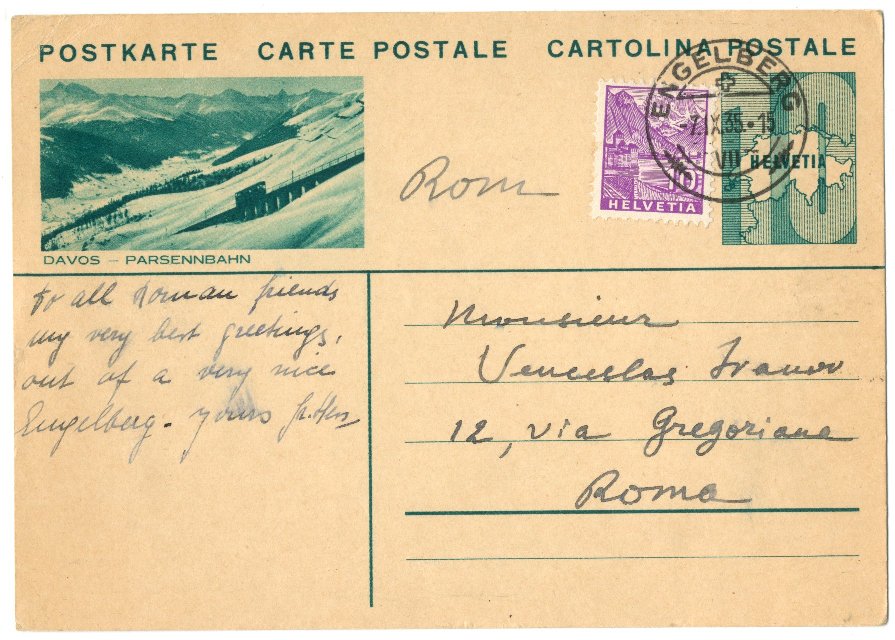 POSTKARTE CARTE POSTALE CARTOLINA POSTALE
ENGELBERG
VII
HELVETIA
HELVETIA
10
Rom
DAVOS – PARSENNBAHN
to all Roman friends
my very best greetings,
out of a very nice
Engelberg. yours
Monsieur
Venceslas Ivanov
12, via Gregoriana
Roma